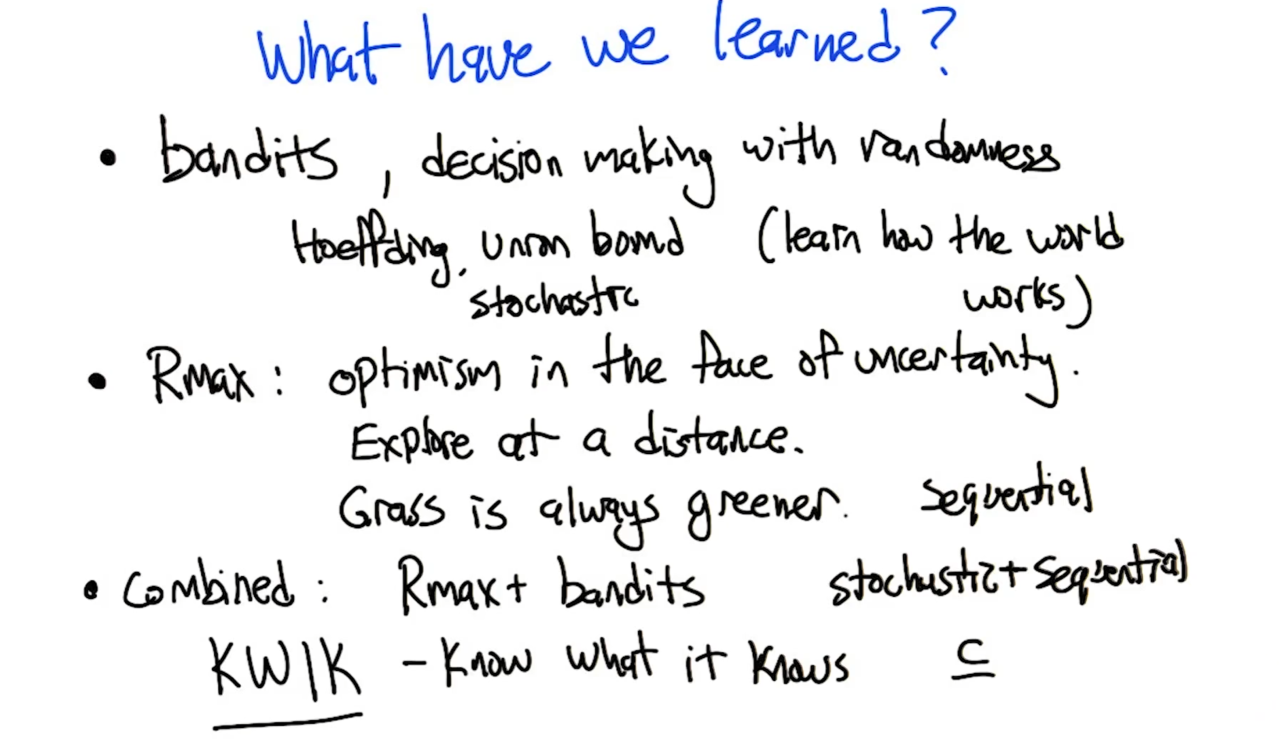 What have we learned?
• bandits, decision making with randomness
Hoeffding, union bound (learn how the world
stochastic works)
• Rmax: optimism in the face of uncertainty.
Explore at a distance.
Grass is always greener. sequential
• Combined: Rmax + bandits stochastic + sequential
KWIK - Know what it knows C